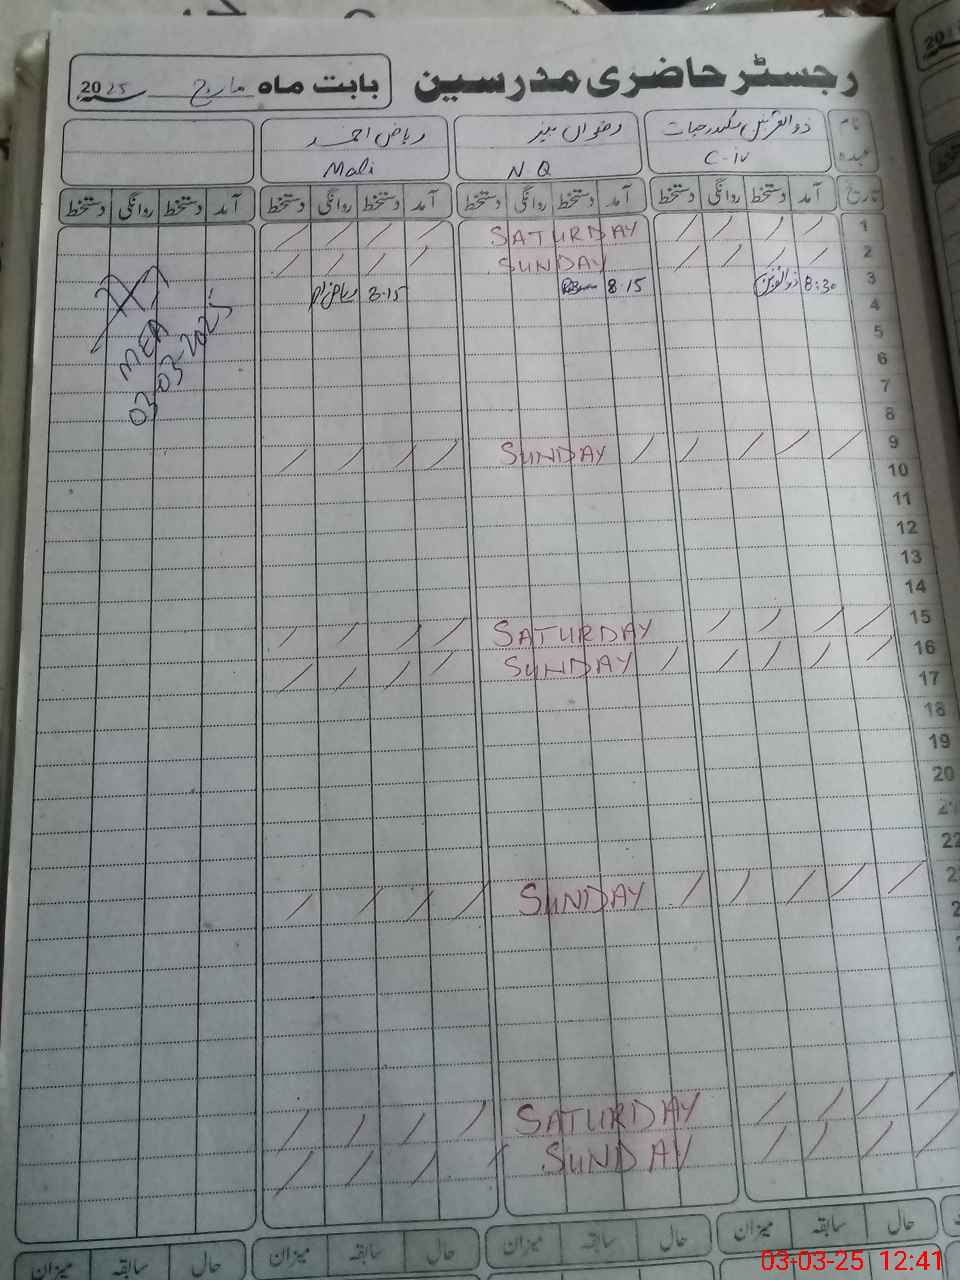 رجسٹر حاضری مدرسین
بابت ماہ مارچ 2025
نام
عہدہ
رضوان
ریاض احمد
C-iv
N Q
Mali
تاریخ
آمد دستخط روانگی دستخط آمد دستخط روانگی دستخط آمد دستخط روانگی دستخط آمد دستخط روانگی دستخط
1 SATURDAY
2 SUNDAY
3 8:30 8.15 8.15
4
5
6
7
8
9 SUNDAY
10
11
12
13
14
15 SATURDAY
16 SUNDAY
17
18
19
20
22
SUNDAY
SATURDAY
SUNDAY
MEA
03-03-2025
حال سابقہ میزان حال سابقہ میزان حال سابقہ میزان حال سابقہ میزان
03-03-25 12:41